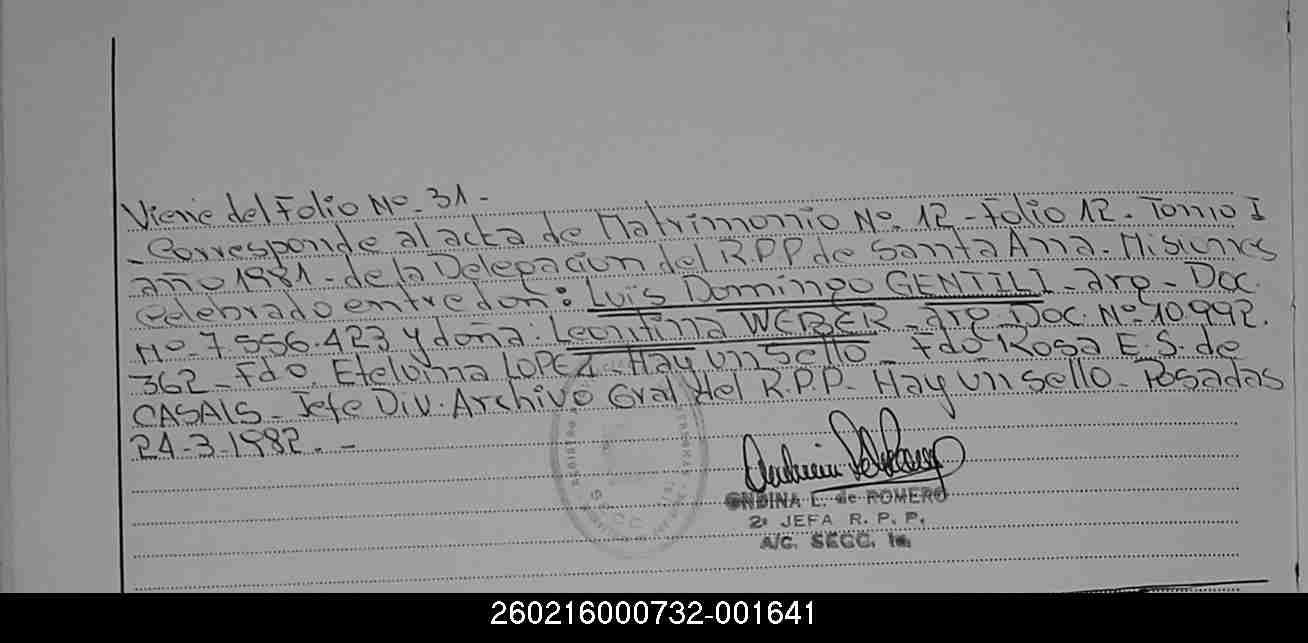 Viene del Folio Nº 31 -
- Corresponde al acta de Matrimonio Nº. 12 - Folio 12 - Tomo I
año 1981 - de la Delegacion del R.P.P de Santa Ana - Misiones
celebrado entre don: Luis Domingo GENTILI - arg - Doc.
Nº 7.556.423 y doña: Leontina WEBER - arg. Doc. Nº 10.992.
362 - Fdo. Etelvina LOPEZ - Hay un sello - Fdo Rosa E. S. de
CASALS - Jefe Div. Archivo Gral del R.P.P - Hay un sello - Posadas
24-3-1982. -
ONDINA E. de ROMERO
2ª JEFA R. P. P.
A/C. SECC. 1a.
260216000732-001641